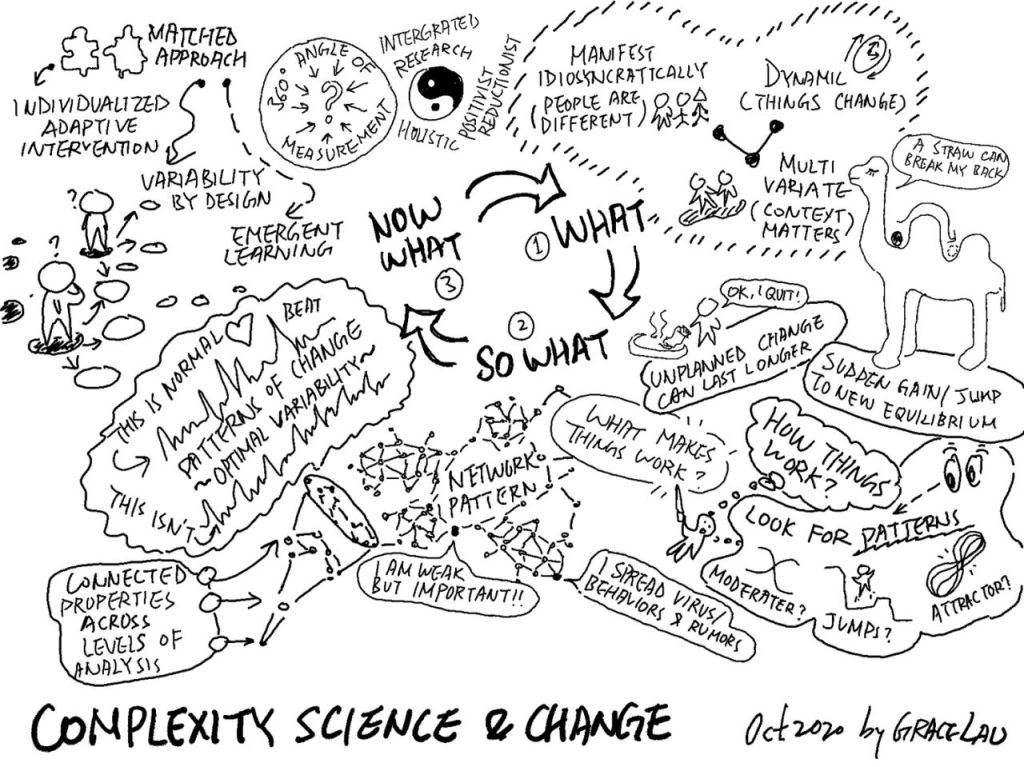 MATCHED
APPROACH
INDIVIDUALIZED
ADAPTIVE
INTERVENTION
VARIABILITY
BY DESIGN
EMERGENT
LEARNING
?
?
360° ANGLE OF
MEASUREMENT
?
?
INTERGRATED
RESEARCH
HOLISTIC
POSITIVIST
REDUCTIONIST
NOW
WHAT
3
1
WHAT
2
SO WHAT
MANIFEST
IDIOSYNCRATICALLY
(PEOPLE ARE
DIFFERENT)
DYNAMIC
(THINGS CHANGE)
MULTI
VARIATE
(CONTEXT
MATTERS)
A STRAW CAN
BREAK MY BACK
OK, I QUIT!
UNPLANNED CHANGE
CAN LAST LONGER
SUDDEN GAIN/JUMP
TO NEW EQUILIBRIUM
WHAT MAKES
THINGS WORK?
HOW THINGS
WORK?
LOOK FOR PATTERNS
MODERATER?
JUMPS?
ATTRACTOR?
THIS IS NORMAL
BEAT
PATTERNS OF CHANGE
~OPTIMAL VARIABILITY~
THIS ISN'T
NETWORK
PATTERN
I AM WEAK
BUT IMPORTANT!!
I SPREAD VIRUS/
BEHAVIORS & RUMORS
CONNECTED
PROPERTIES
ACROSS
LEVELS OF
ANALYSIS
COMPLEXITY SCIENCE & CHANGE
Oct 2020 by GRACE LAU